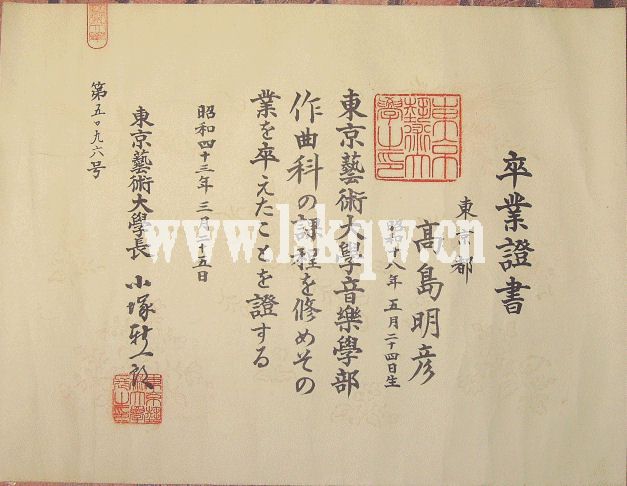 卒業證書
東京都
髙島明彦
昭和十八年五月二十四日生
東京藝術大學音樂學部
作曲科の課程を修めその
業を卒えたことを證する
昭和四十三年三月二十五日
東京藝術大學長 小塚新一郎
第五〇九六号
www.lskqw.cn